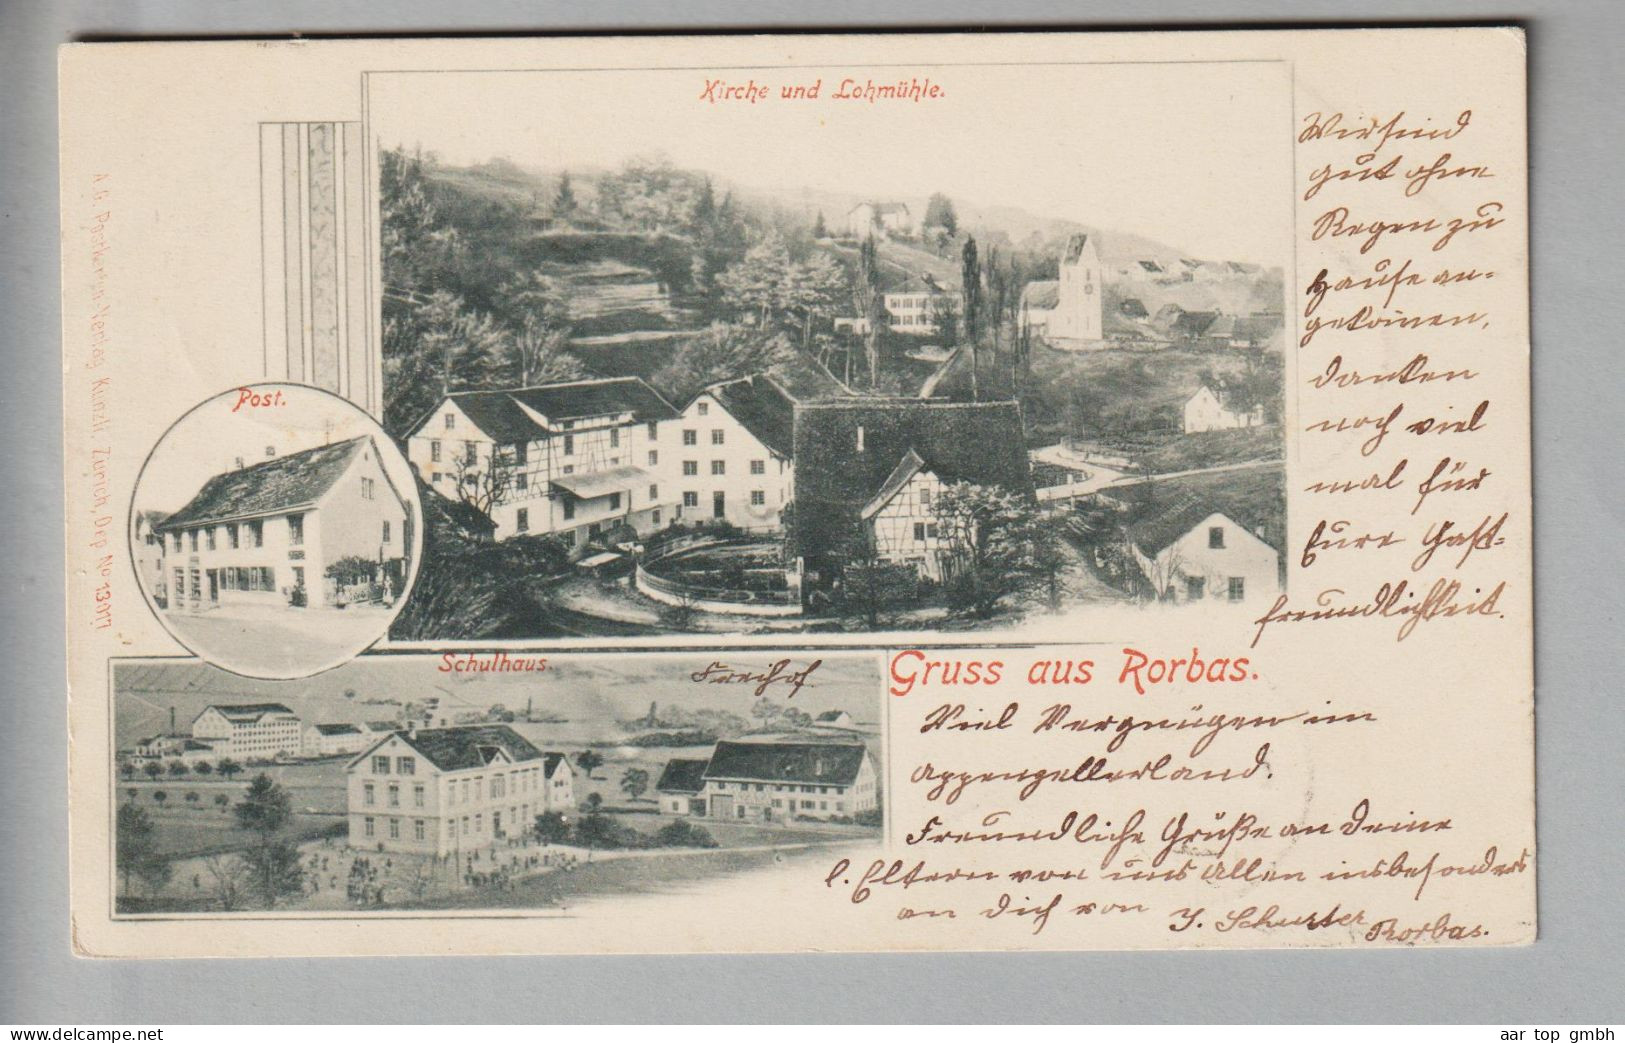 Kirche und Lohmühle.
A.G. Postkarten-Verlag Künzli. Zürich, Dep. No 13017
Post.
Schulhaus.
Freihof.
Gruss aus Rorbas.
Wir sind
gut ohne
Regen zu
Hause an-
gekom̅en,
danken
noch viel
mal für
Eure Gast-
freundlichkeit.
Viel Vergnügen im
Appenzellerland.
Freundliche Grüße an Deine
l. Eltern von uns Allen insbesonders
an Dich von J. Schurter Rorbas.
aar top gmbh
www.delcampe.net